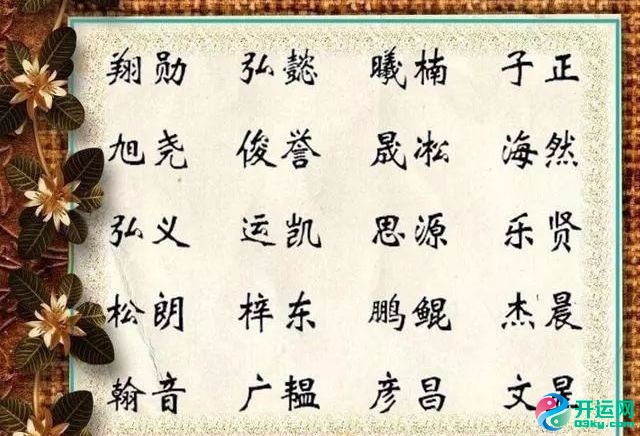 翔勋 弘懿 曦楠 子正
旭尧 俊誉 晟凇 海然
弘义 运凯 思源 乐贤
松朗 梓东 鹏鲲 杰晨
翰音 广韫 彦昌 文昱
开运网